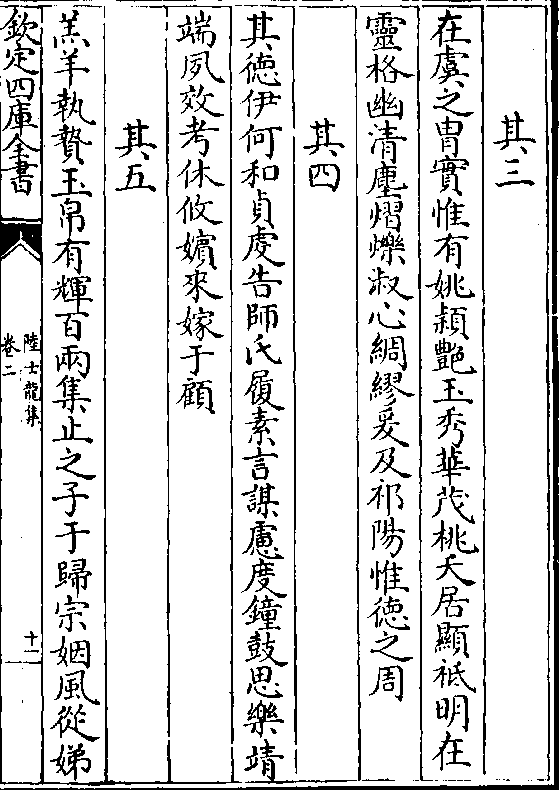 其三
在虞之胄實惟有姚頴艷玉秀華茂桃夭居顯祗明在
靈格幽清塵熠爍淑心綢繆爰及祁陽惟德之周
其四
其德伊何和貞虔告師氏履素言謀慮度鐘鼓思樂靖
端夙效考休攸嬪來嫁于顧
其五
羔羊執贄玉帛有輝百兩集止之子于歸宗姻風從娣
欽定四庫全書
陸士龍集
卷二
十一